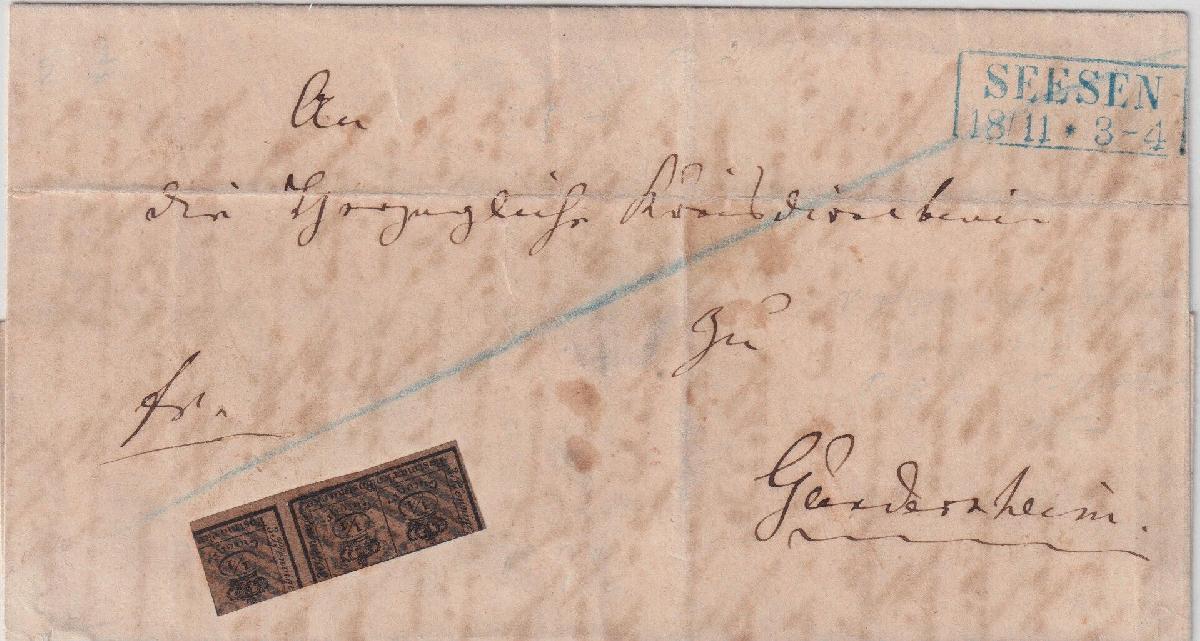 SEESEN
18/11 * 3-4
An
die Herzogliche Kreisdirection
zu
fr.
Gandersheim.